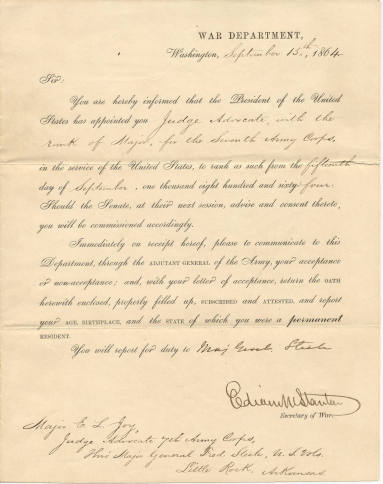 WAR DEPARTMENT,
Washington, September 15th, 1864.
Sir:
You are hereby informed that the President of the United
States has appointed you Judge Advocate, with the
rank of Major, for the Seventh Army Corps,
in the service of the United States, to rank as such from the fifteenth
day of September, one thousand eight hundred and sixty-four.
Should the Senate, at their next session, advise and consent thereto,
you will be commissioned accordingly.
Immediately on receipt hereof, please to communicate to this
Department, through the ADJUTANT GENERAL of the Army, your acceptance
or non-acceptance; and, with your letter of acceptance, return the OATH
herewith enclosed, properly filled up, SUBSCRIBED and ATTESTED, and report
your AGE, BIRTHPLACE, and the STATE of which you were a permanent
RESIDENT.
You will report for duty to Maj Genl. Steele
Edwin M Stanton
Secretary of War.
Major E. L. Joy,
Judge Advocate 7th Army Corps,
Thro' Major General Fred. Steele, U.S. Vols.
Little Rock, Arkansas